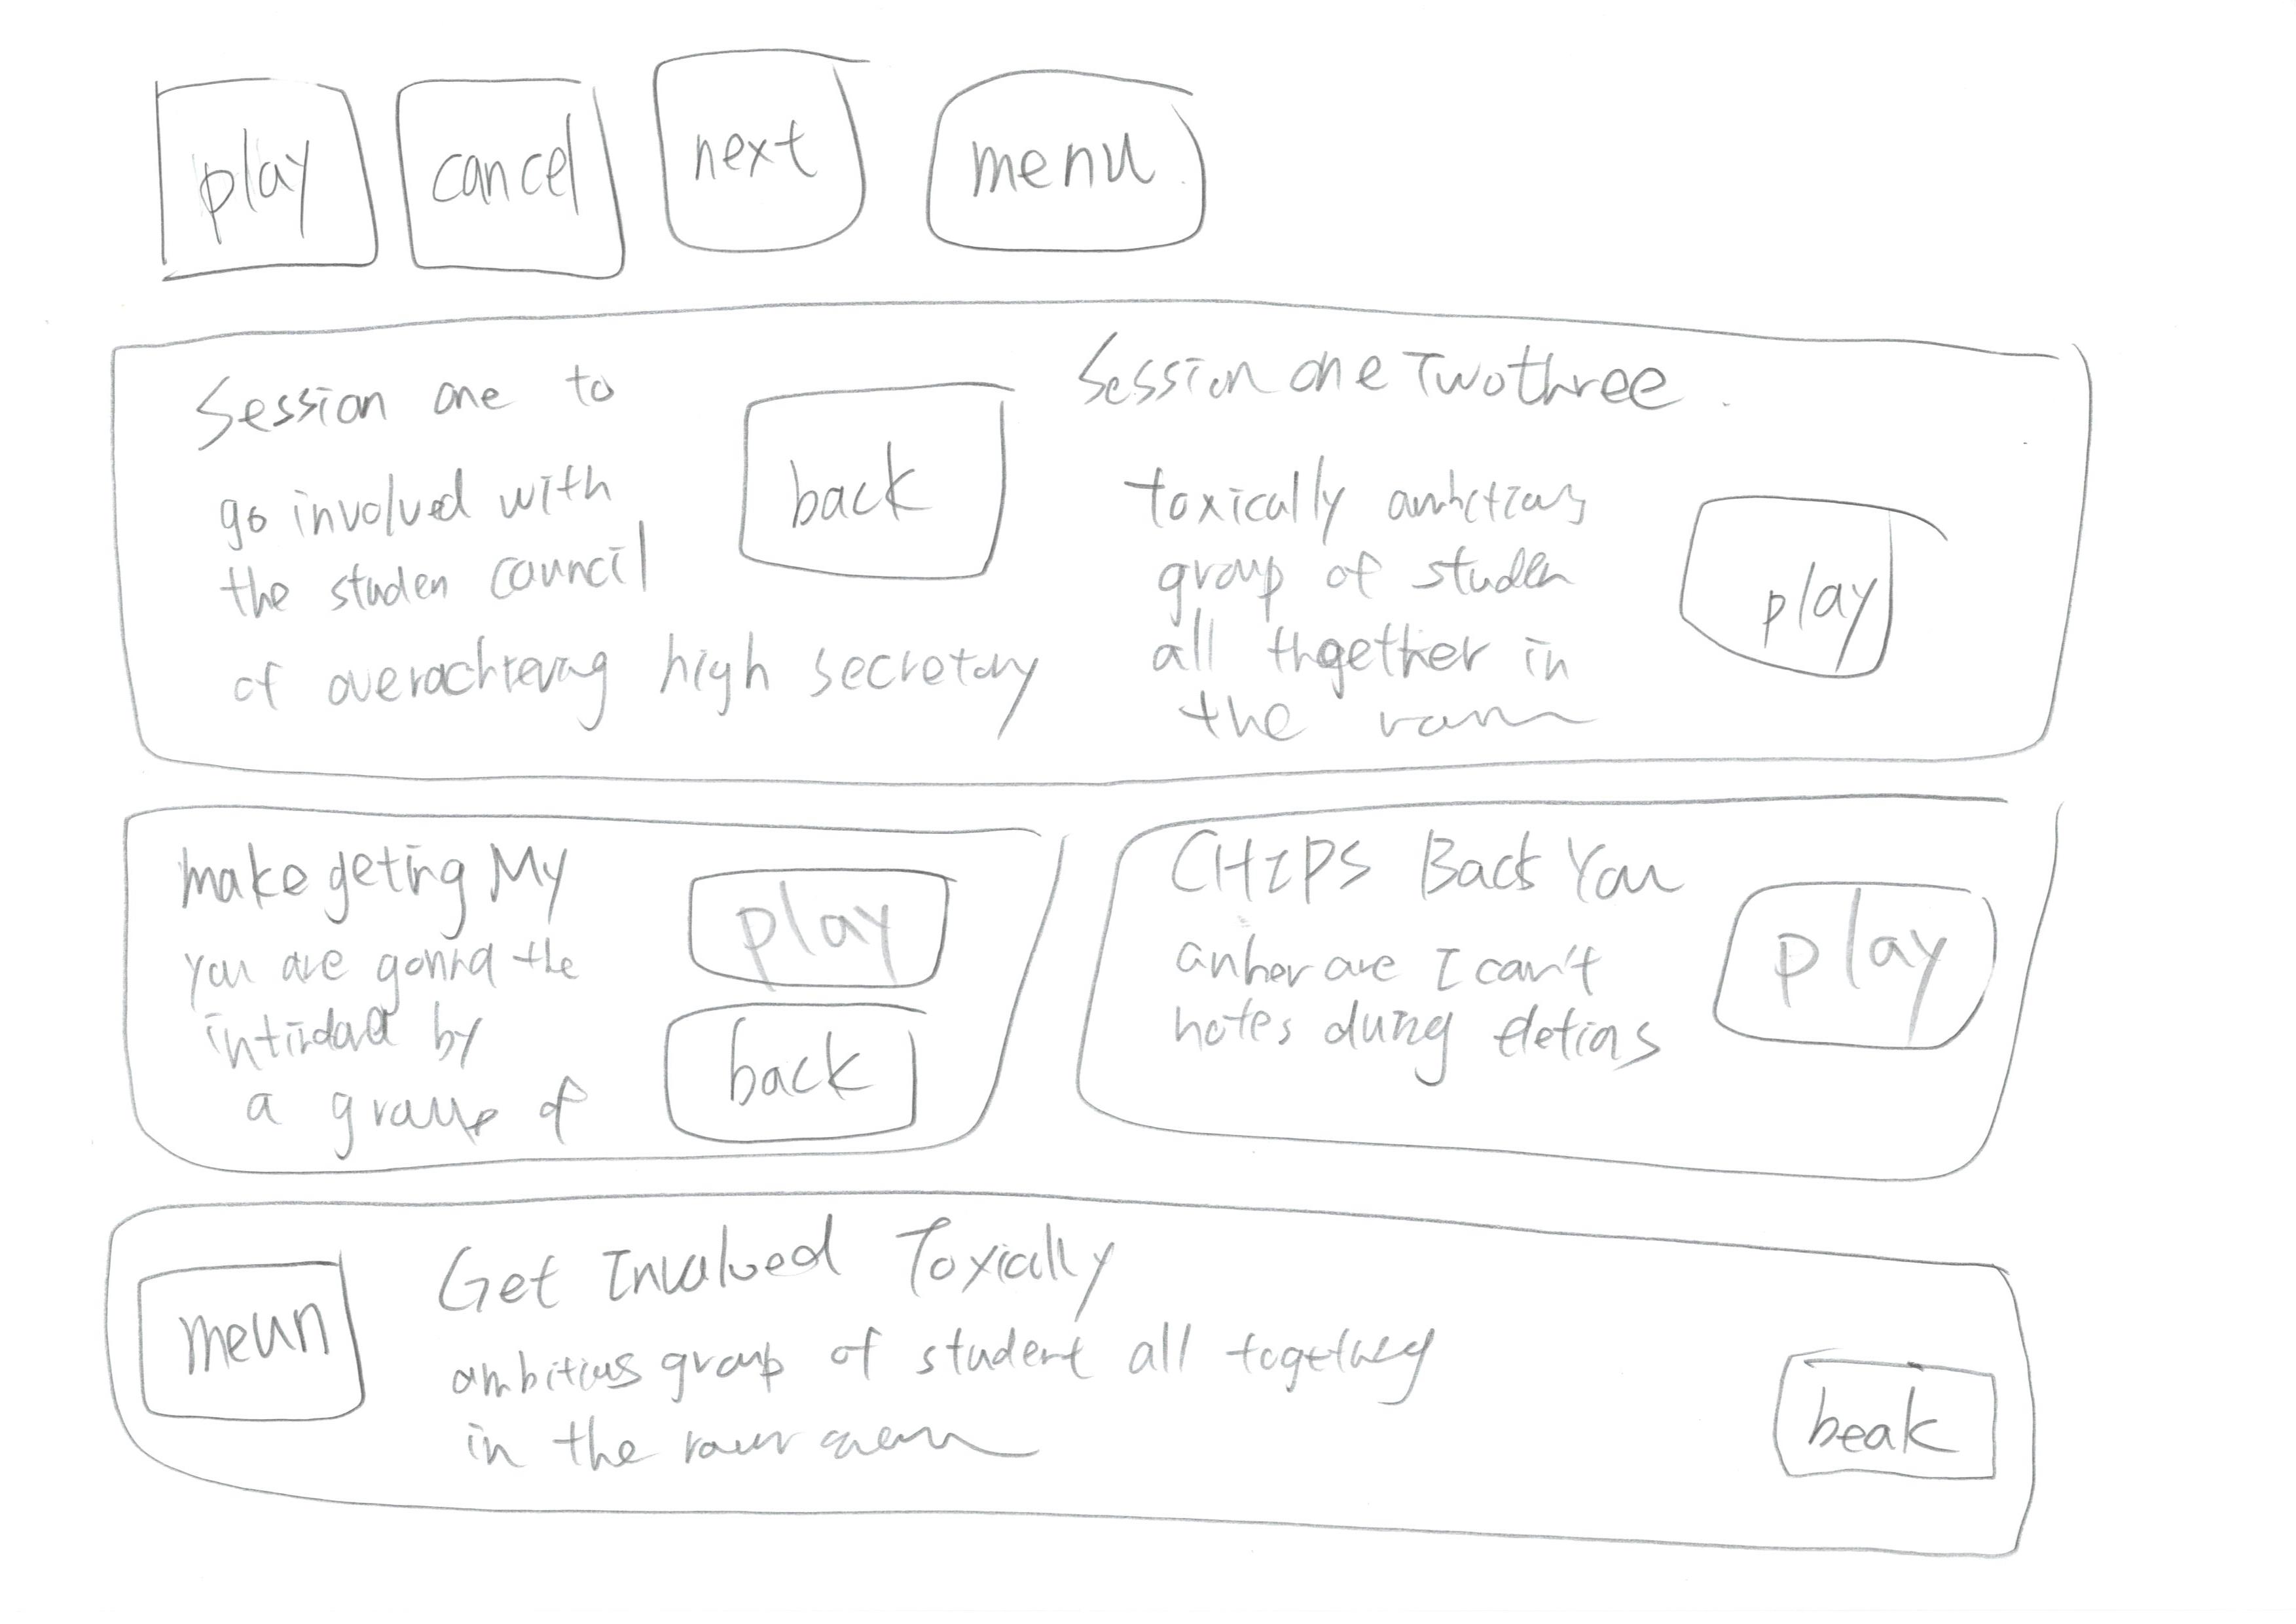 play
cancel
next
menu
Session one to
go involved with
the studen council
of overachieving high secretary
back
Session one Two three
toxically ambitious
group of studen
all thgether in
the
play
make geting My
you are gonna the
by
a group of
play
back
CHIPS Back You
are I can't
notes duing
play
meun
Get Involved Toxically
ambitius group of student all
in the
beak